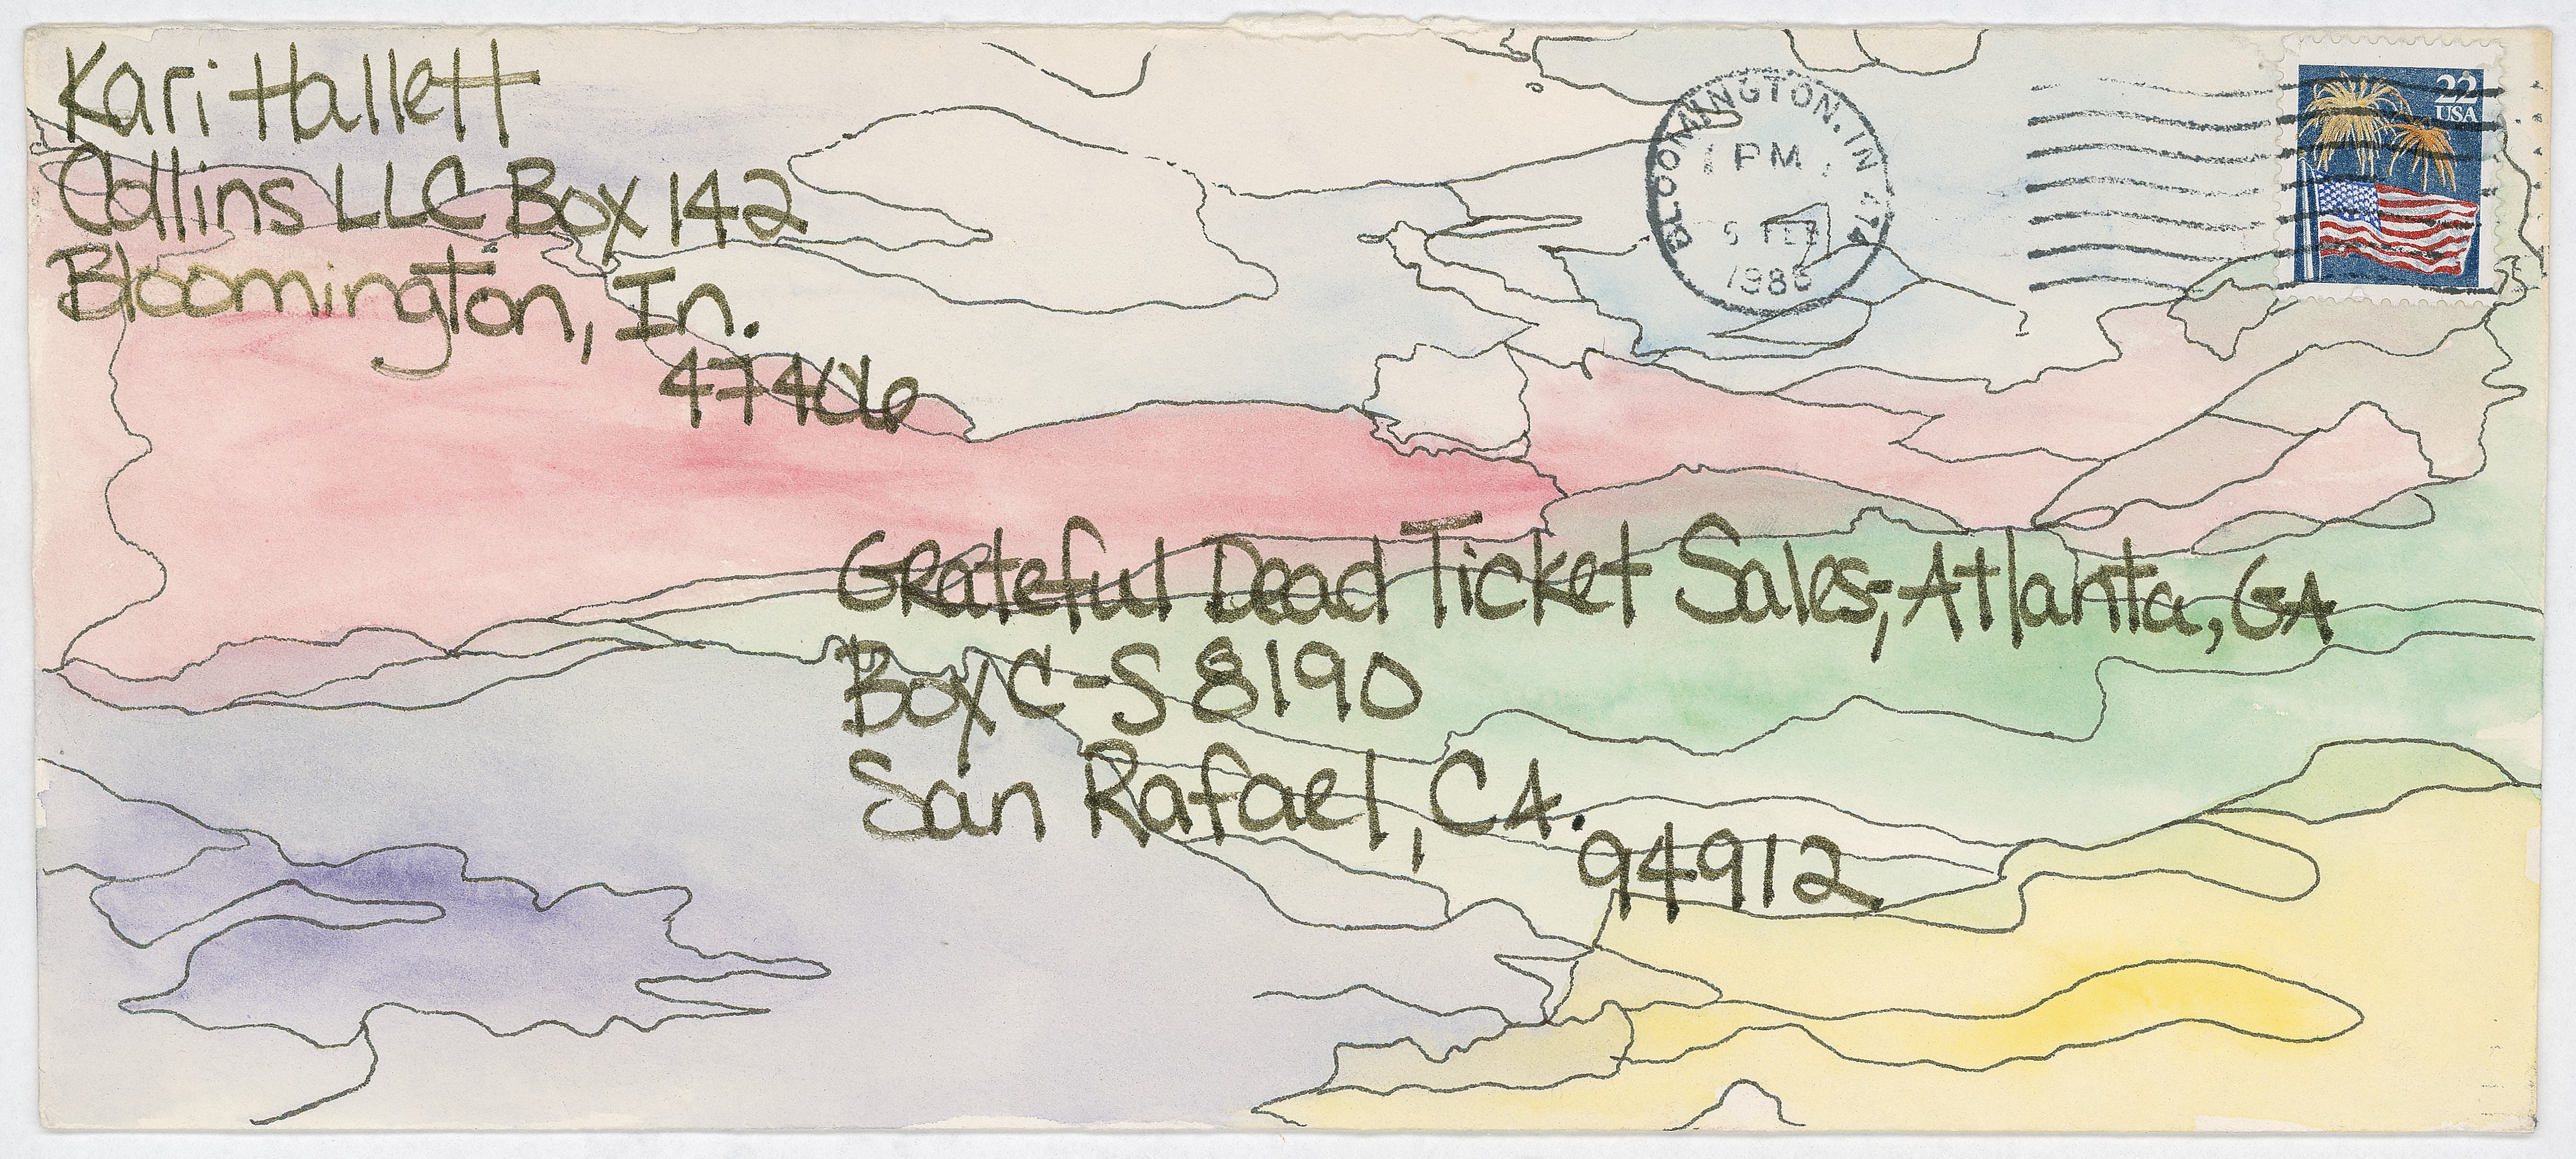 Kari Hallett
Collins LLC Box 142
Bloomington, In.
47406
BLOOMINGTON, IN 474
PM
5 FEB
1988
22
USA
Grateful Dead Ticket Sales, Atlanta, GA
Box C-S 8190
San Rafael, CA.
94912